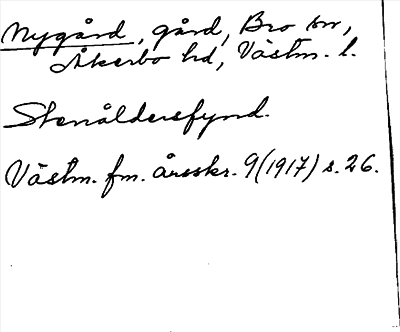 Nygård, gård, Bro sn,
Åkerbo hd, Västm. l.
Stenåldersfynd.
Västm. fm. årsskr. 9(1917) s. 26.